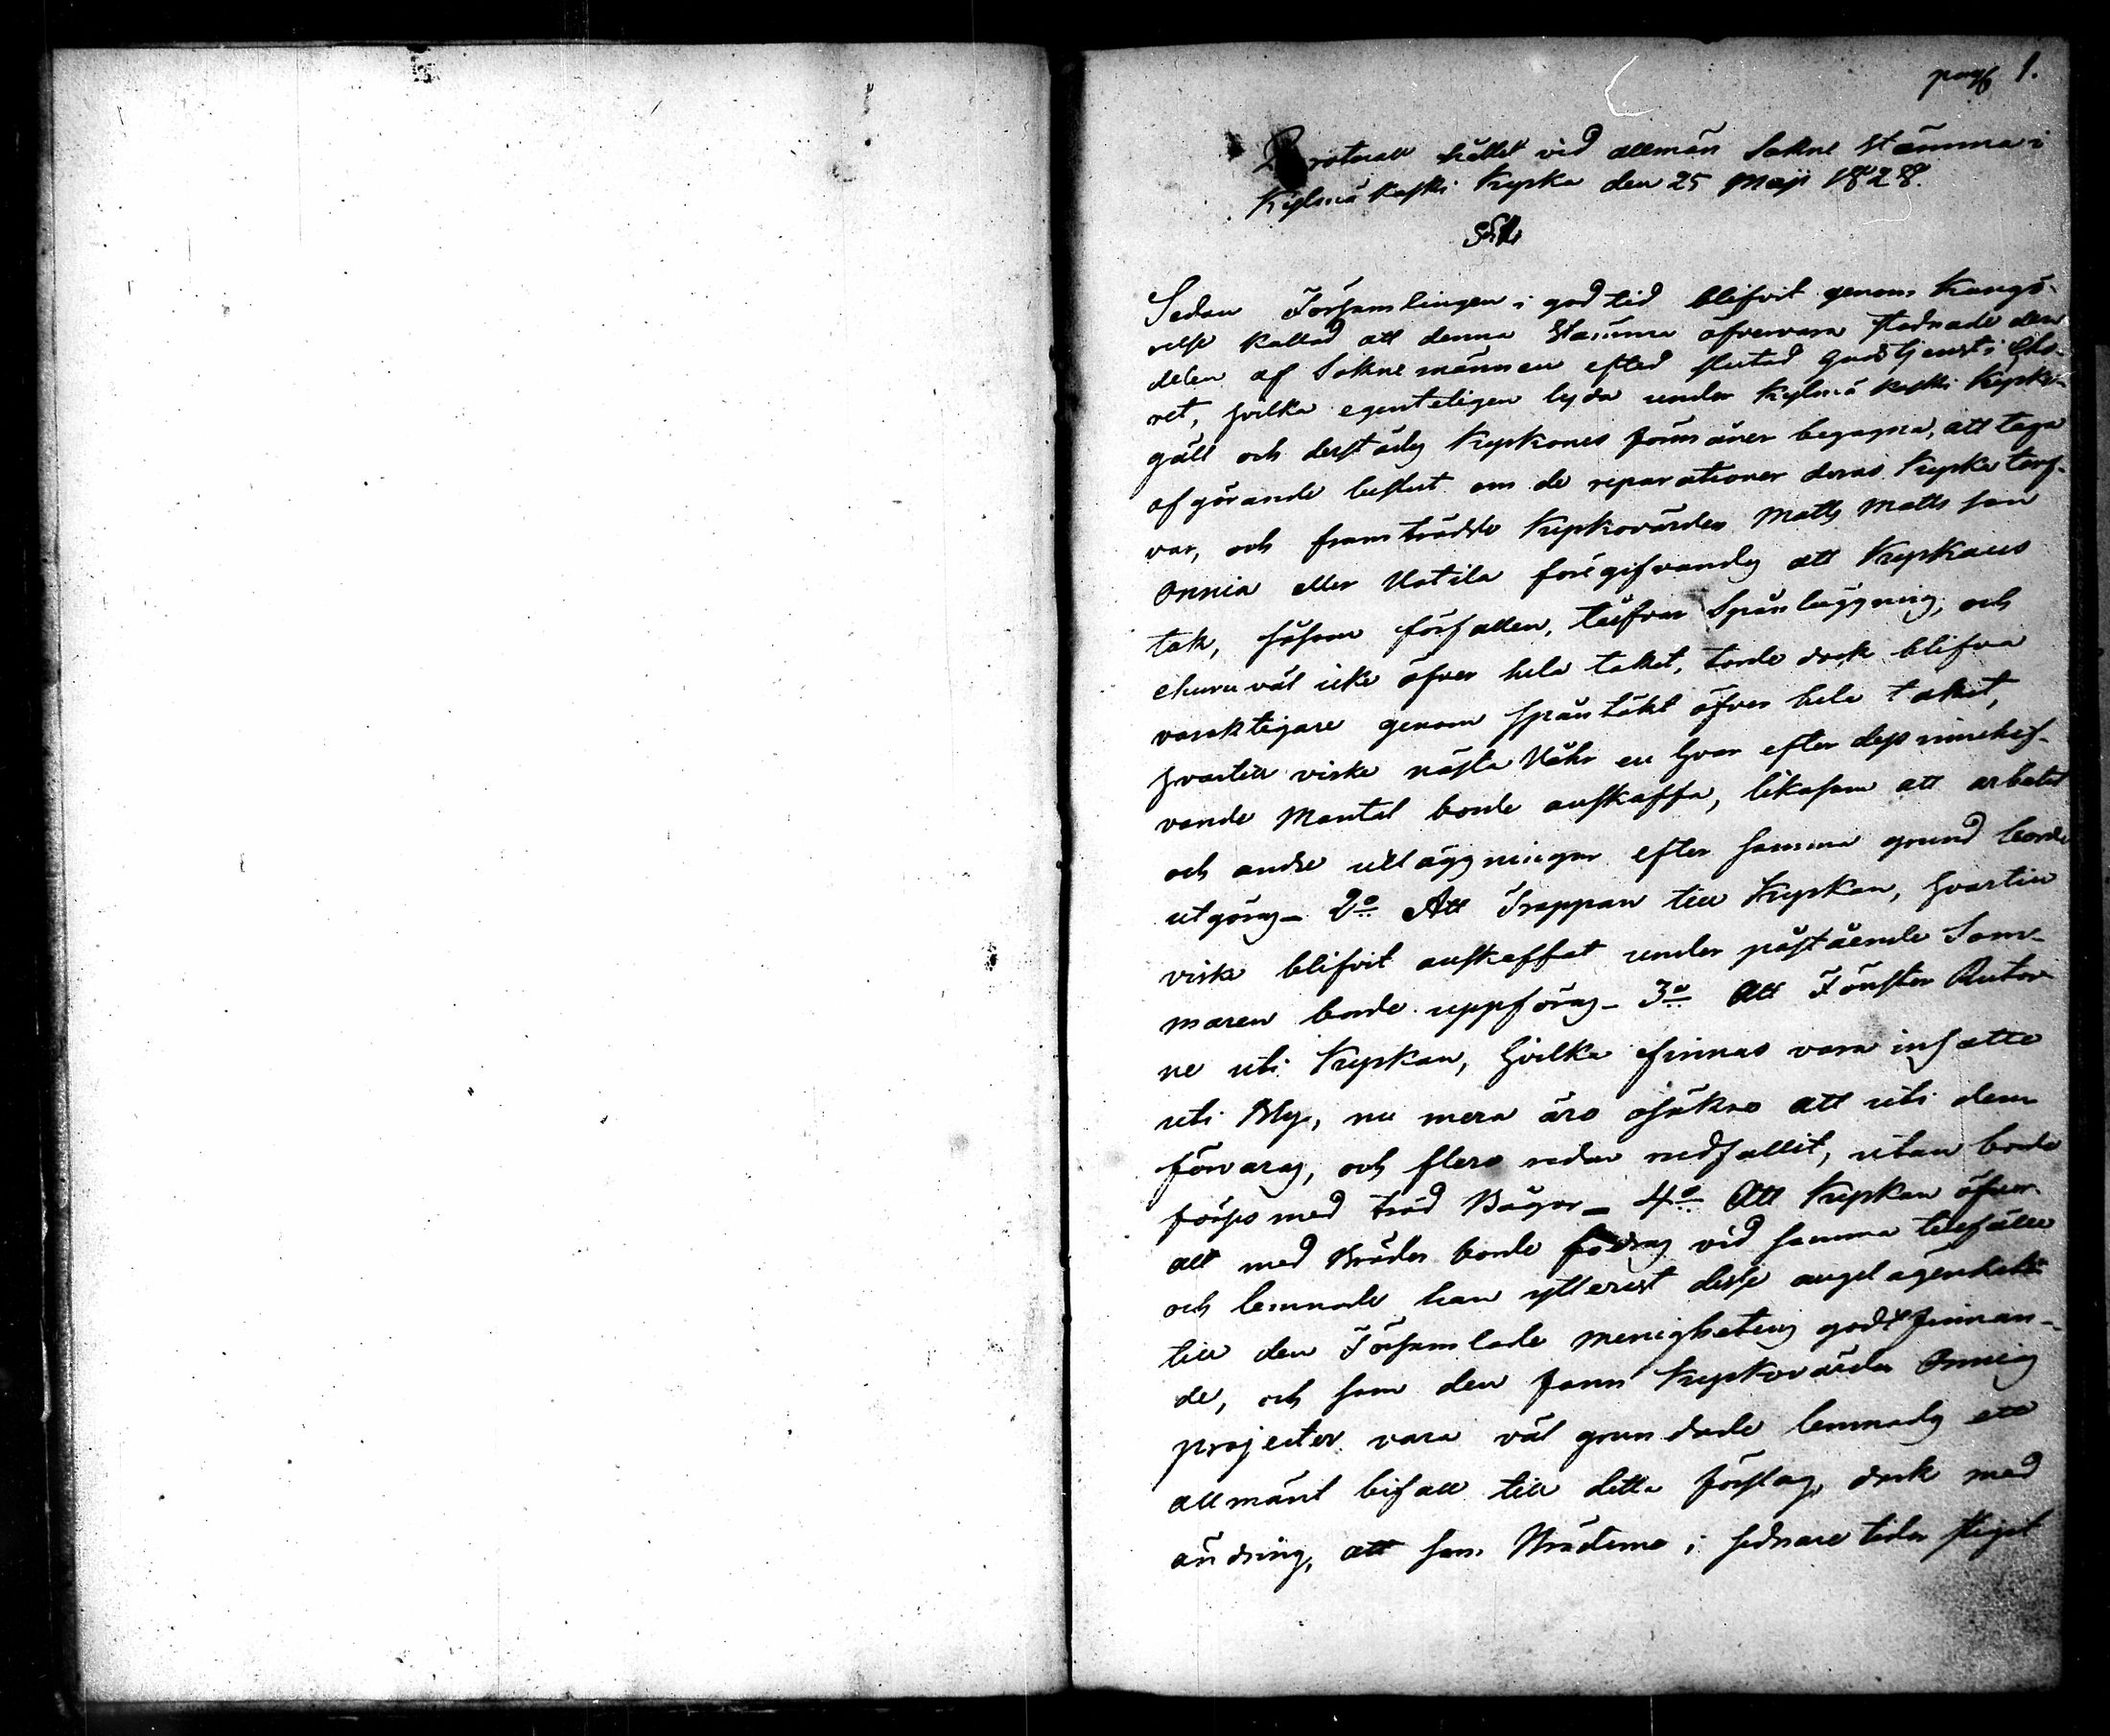 pag 1.
Protocoll hållet vid allmän Sokne Stämma i
Kylmäkoski Kyrka den 25 Maji 1828.
S. D.
Sedan Församlingen i god tid blifvit genom Kungö-
relse kallad att denna Stämma öfvervara stadnade den
delen af Soknemännen efter slutad Gudstjenst i Cho-
ret, hvilka egenteligen lyda under Kylmäkoski Kyrko-
gäll och derstädes Kyrkones förmåner begagna, att taga
afgörande beslut om de reparationer deras Kyrka tarf-
var, och framträdde Kyrkovärden Matts Mattsson
Onnia eller Uotila föregifvandes att Kyrkans
tak, såsom förfallen, täfvar Spånläggning, och
churuväl icke öfver hela taket, torde dock blifva
varaktigare genom spåntäkt öfver hela taket,
hvartill virke nästa Våhr en hvar efter dess innehaf-
vande Mantal borde anskaffa, likasom att arbetet
och andre utläggningar efter samma grund borde
utgöras – 2o Att Trappan till Kyrkan, hvartill
virke blifvit anskaffat under påstående Som-
maren borde uppföras – 3o Att Fönster Rutor-
ne uti Kyrkan, hvilka finnas vara insatte
uti Bly, nu mera äro osäkre att uti dem
förvaras, och flere redan nedfallit, utan borde
förses med träd Bågar – 4o Att Kyrkan öfver-
allt med Bräder borde fodras vid samma tillfälle
och lemnade han ytterst desse angelägenheter
till den Församlade menighetens godtfinnan-
de, och som den fann Kyrkovärden Onnias
projecter vara väl grundade lemnades ett
allmänt bifall till detta förslag, dock med
ändring, att som Bräderne i sednare tider stigit